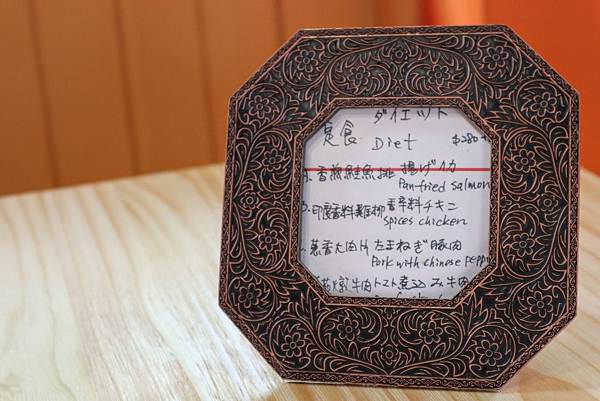 ダイエット
意食 Diet $280
香煎鮭魚排 揚げイカ
Pan-fried salmon
印度香料雞柳 香辛料チキン
spices chicken
蔥香大肉片 左王ねぎ豚肉
Pork with chinese pepp
牛肉トマト煮込み牛肉